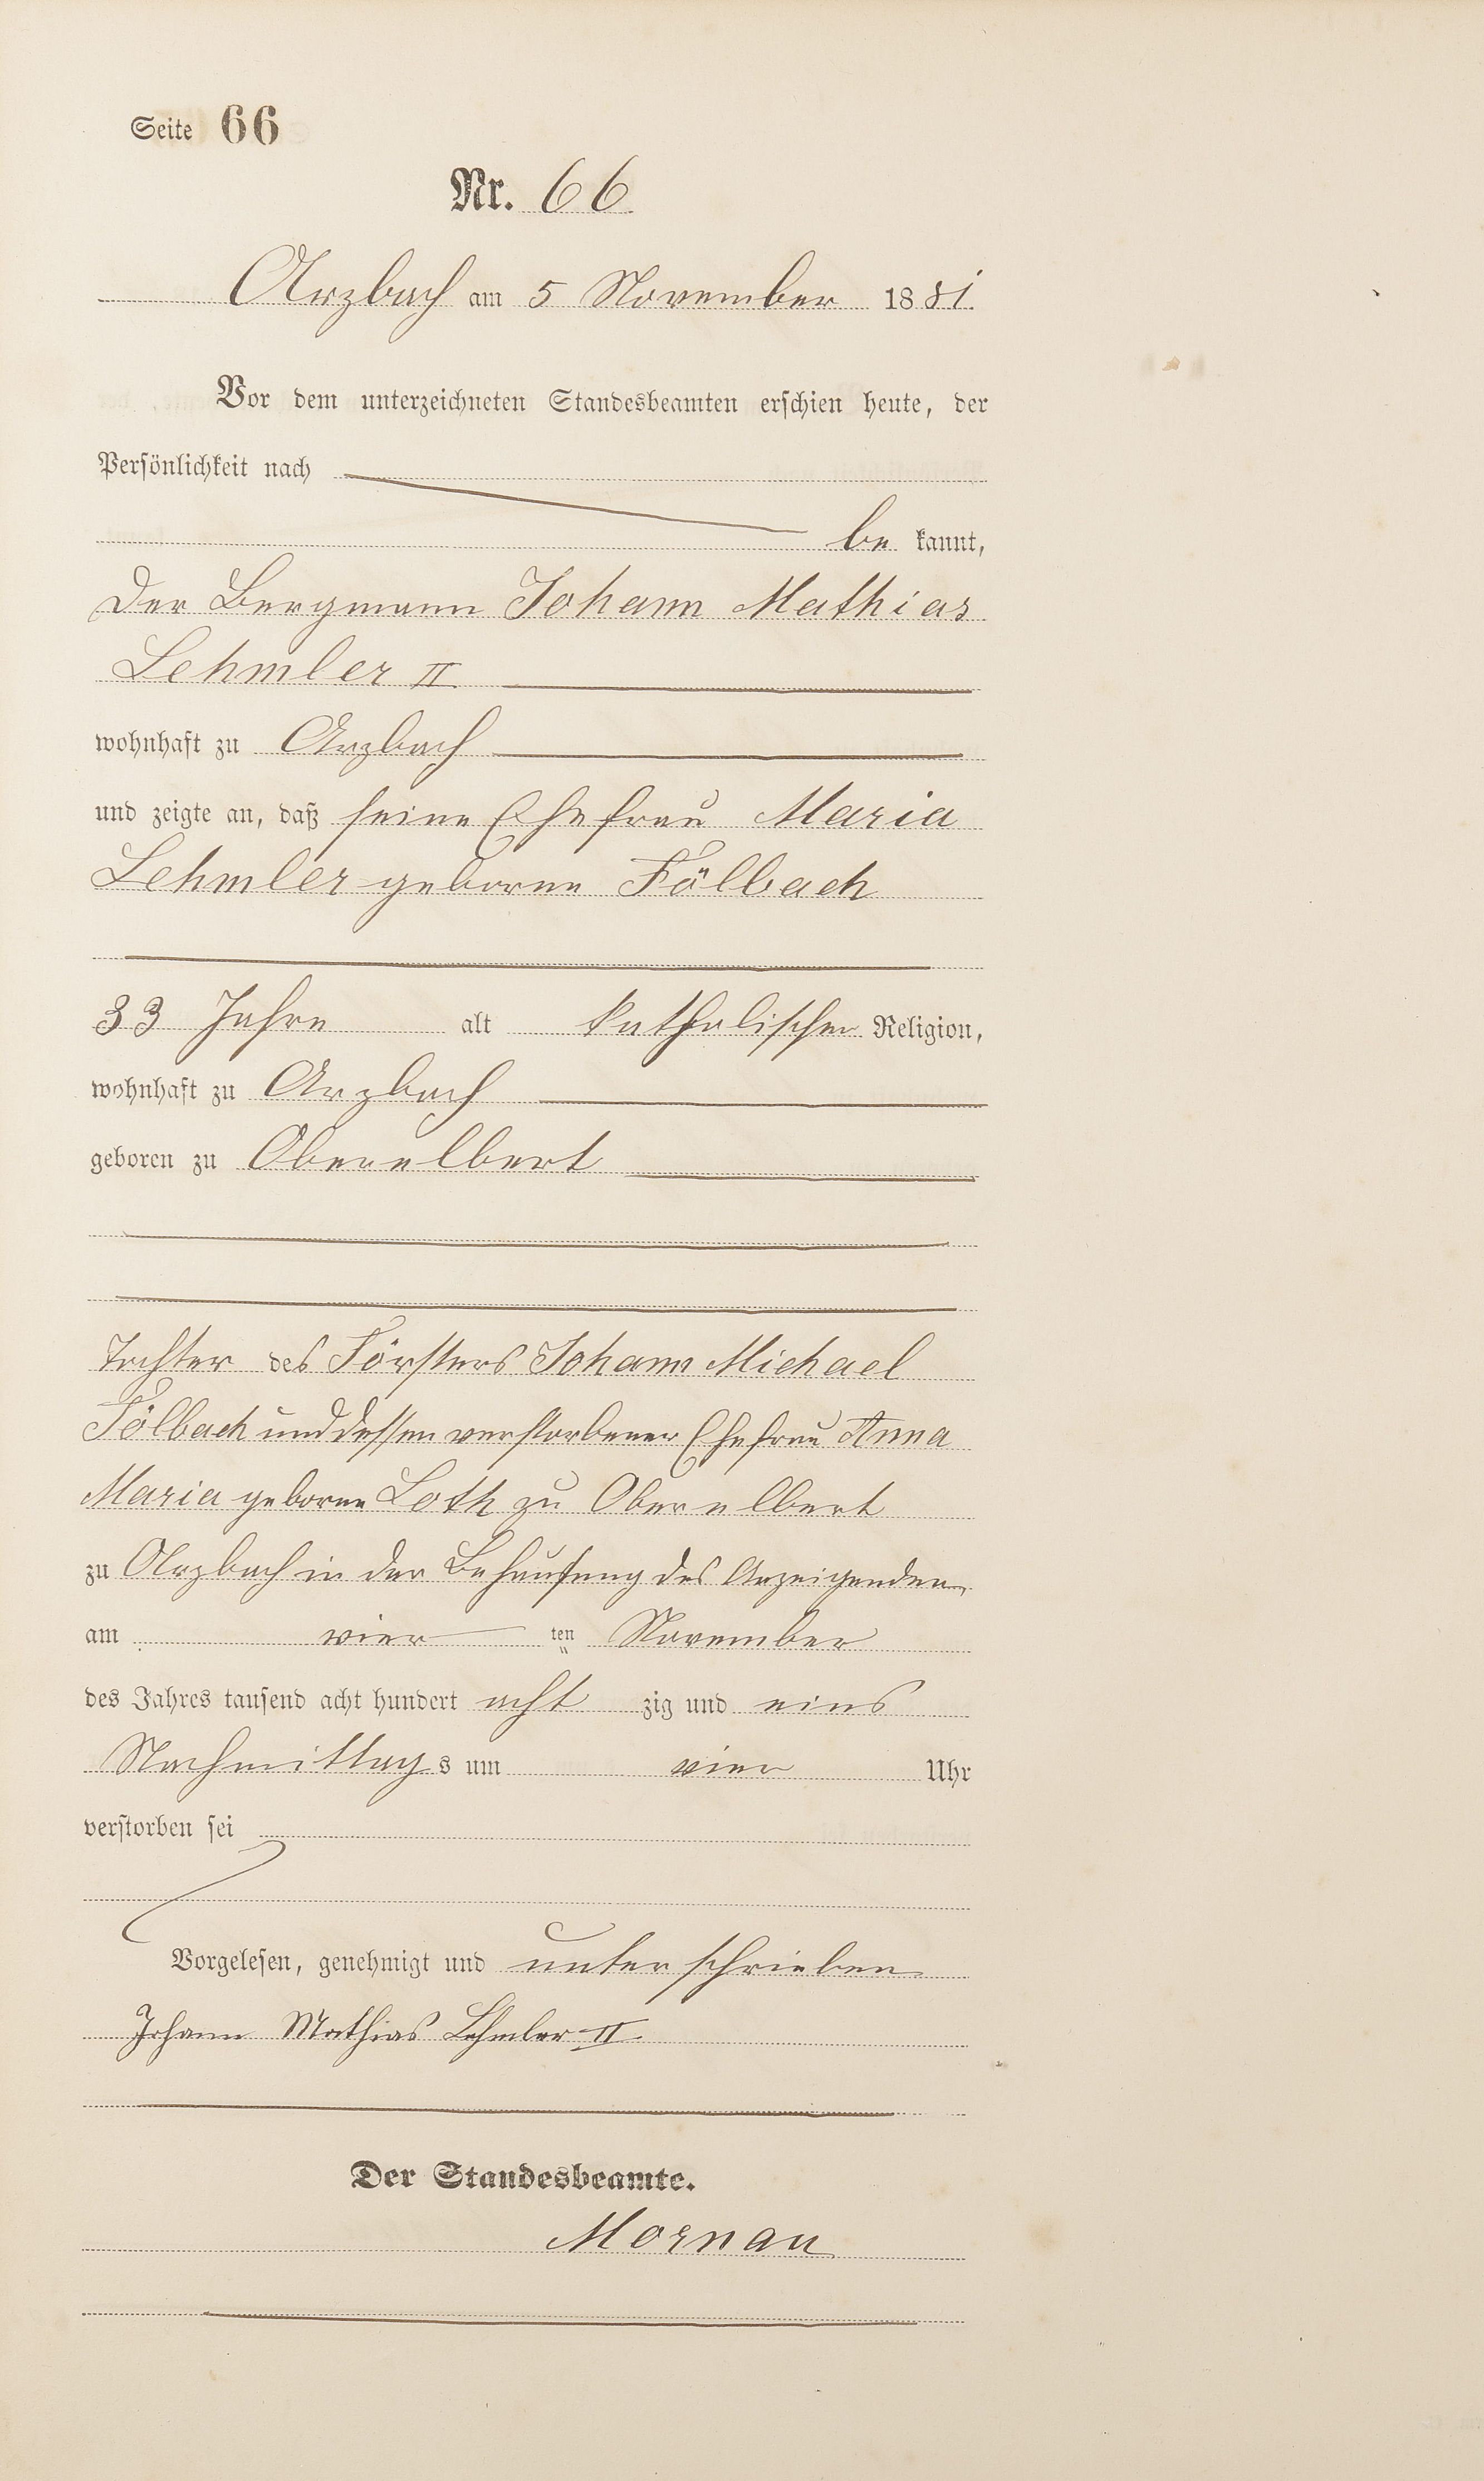 Seite 66
Nr. 66
Arzbach am 5 November 1881
Vor dem unterzeichneten Standesbeamten erschien heute, der
Persönlichkeit nach
be kannt,
Der Bergmann Johann Mathias
Lehmler II
wohnhaft zu Arzbach
und zeigte an, daß seine Ehefrau Maria
Lehmler geborne Fölbach
33 Jahre alt katholischer Religion,
wohnhaft zu Arzbach
geboren zu Oberelbert
Tochter des Försters Johann Michael
Fölbach und dessen verstorbener Ehefrau Anna
Maria geborne Loth zu Oberelbert
zu Arzbach in der Behausung des Anzeigenden,
am vier ten November
des Jahres tausend acht hundert acht zig und eins
Nachmittags um vier Uhr
verstorben sei
Vorgelesen, genehmigt und unterschrieben
Johann Mathias Lehmler II
Der Standesbeamte.
Mornau